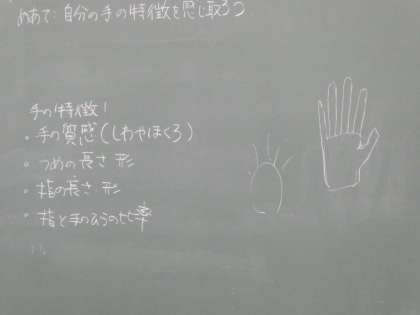 めあて:自分の手の特徴を感じ取ろう
手の特徴!
・手の質感(しわやほくろ)
・つめの長さ 形
・指の長さ 形
・指と手のひらの比率